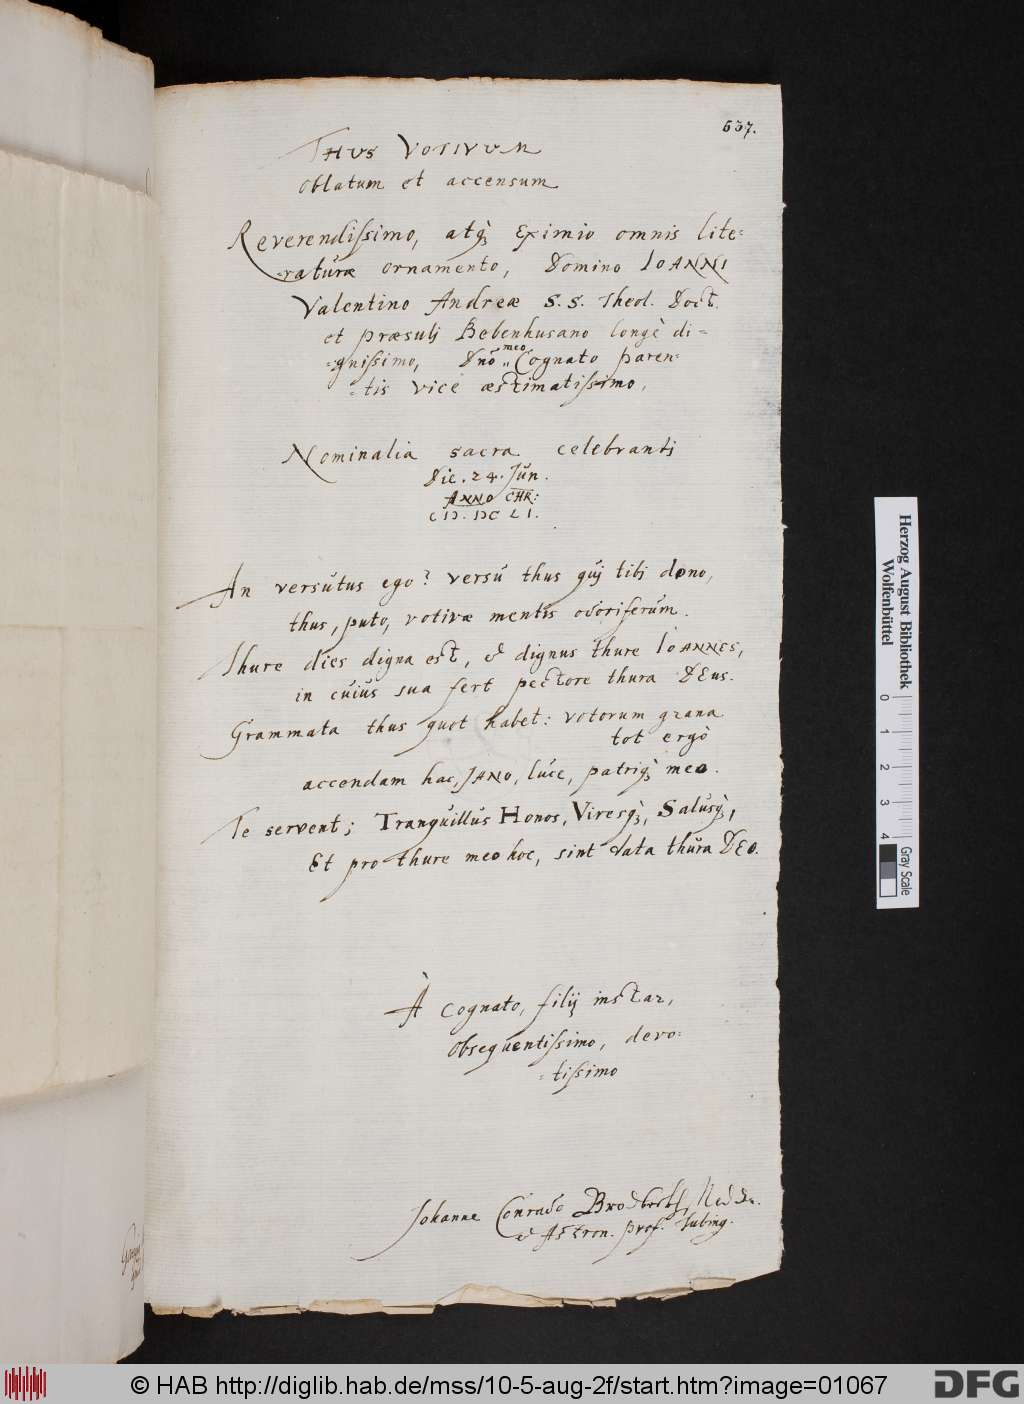 637.
THUS VOTIVUM
oblatum et accensum
Reverendissimo, atq; Eximio omnis lite=
=raturæ ornamento, Domino IOANNI
Valentino Andreæ S. S. Theol. Doct.
et præsuli Bebenhusano longè di=
=gnissimo, Dnō meo Cognato paren=
=tis vice æstimatissimo,
Nominalia sacra celebranti
Die. 24. Jun.
ANNO CHR:
CIƆ. IƆC LI.
An versutus ego? versu thus quj tibj dono,
thus, puto, votivæ mentis odoriferum.
Thure dies digna est, & dignus thure IOANNES,
in cuius sua fert pectore thura DEus.
Grammata thus quot habet: votorum grana
tot ergò
accendam hac, JANO, luce, patriq; meo.
Te servent; Tranquillus Honos, Viresq;, Salusq;,
Et pro thure meo hoc, sint data thura DEO.
À Cognato, filij instar,
obsequentissimo, devo=
=tissimo
Johanne Conrado Brodbeck, Med. Dr.
& Astron. Prof. Tubing.
Herzog August Bibliothek
Wolfenbüttel
0 1 2 3 4
Gray Scale
© HAB http://diglib.hab.de/mss/10-5-aug-2f/start.htm?image=01067
DFG